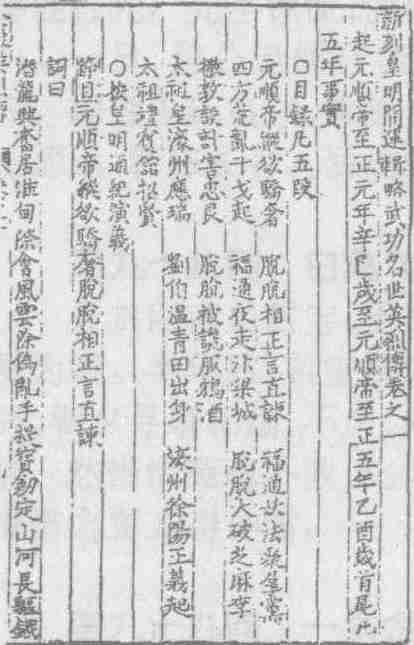 新刻皇明開運輯略武功名世英烈傳卷之一
起元順帝至正元年辛巳歲至元順帝至正五年乙酉歲首尾凡
五年事實
○目錄凡五段
元順帝縱欲驕奢 脫脫相正言直諫 福通妖法聚屋黨
四方荒亂干戈起 福通伐走汴梁城 脫脫大破芝麻李
撒敦設計害忠良 脫脫被讒服鴆酒
太祖皇濠州應瑞 劉伯溫青田出身 濠州徐陽正義起
太祖禮賀館招賢
○按皇明通紀演義
節目元順帝縱欲驕奢脫脫相正言直諫
詞曰
潛龍興奮居淮甸際會風雲除偽亂手提寶劍定山河長驅鐵